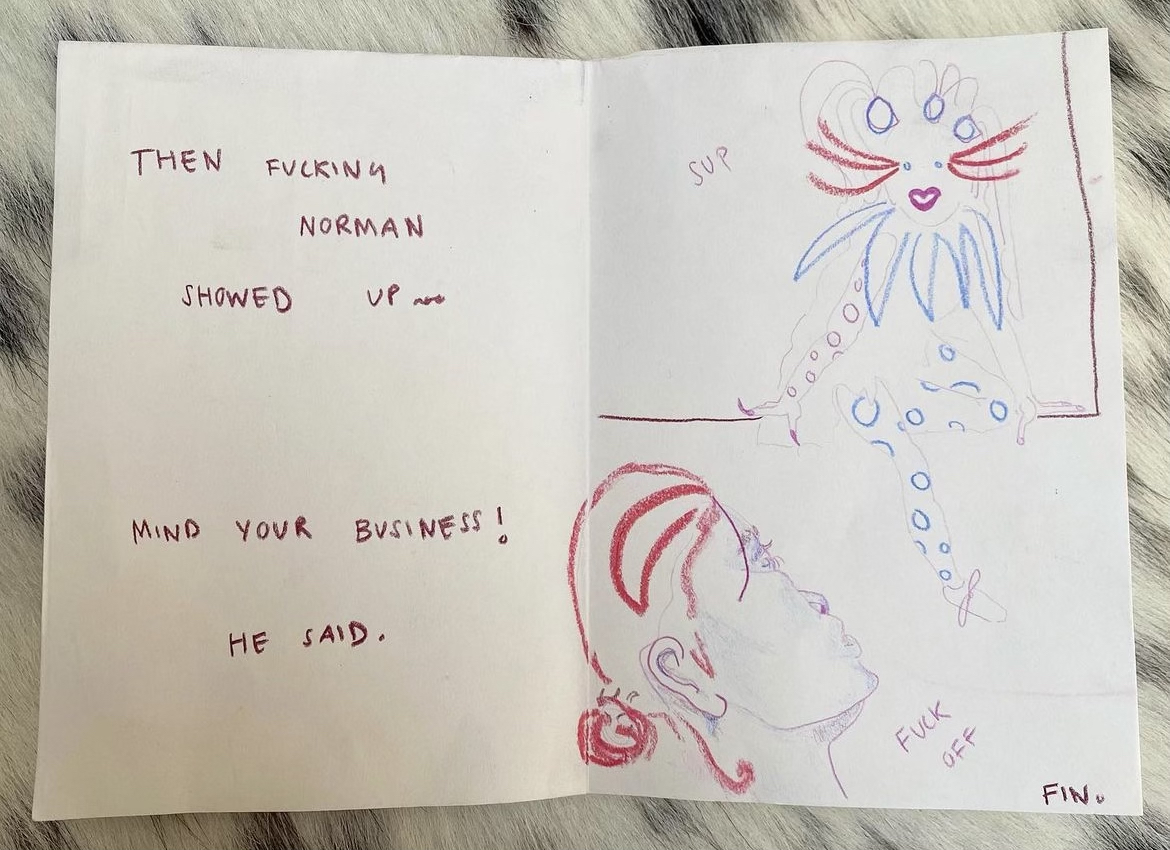 THEN FUCKING
NORMAN
SHOWED UP ~~
MIND YOUR BUSINESS!
HE SAID.
SUP
FUCK
OFF
FIN.